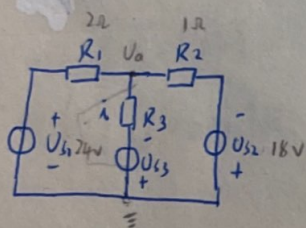 2Ω 1Ω
R₁ Uₐ R₂
i R₃
+ - -
U_S1 24V U_S3 U_S2 18V
- + +